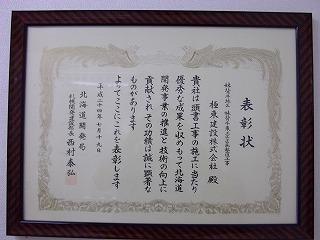 表彰状
極東建設株式会社 殿
貴社は頭書工事の施工に当たり
優秀な成果を収めもって北海道
開発事業の推進と技術の向上に
貢献されその功績は誠に顕著な
ものがあります
よってここにこれを表彰します
平成二十四年七月十九日
北海道開発局
札幌開発建設部長 西村泰弘